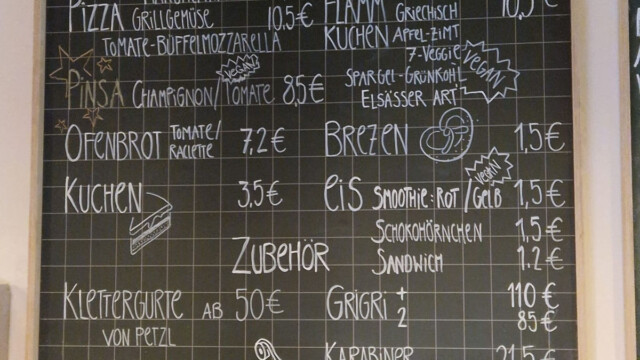 PIZZA GRILLGEMÜSE 10,5€
TOMATE-BÜFFELMOZZARELLA
VEGAN
PINSA CHAMPIGNON/TOMATE 8,5€
OFENBROT TOMATE/
RACLETTE 7,2€
KUCHEN 3,5€
FLAMM GRIECHISCH 10,5€
KUCHEN APFEL-ZIMT
7-VEGGIE
SPARGEL-GRÜNKOHL
VEGAN
ELSÄSSER ART
BREZEN 1,5€
VEGAN
EIS SMOOTHIE: ROT/GELB 1,5€
SCHOKOHÖRNCHEN 1,5€
SANDWICH 1.2€
ZUBEHÖR
KLETTERGURTE AB 50€
VON PETZL
GRIGRI + 110€
2 85€
KARABINER 21,5€